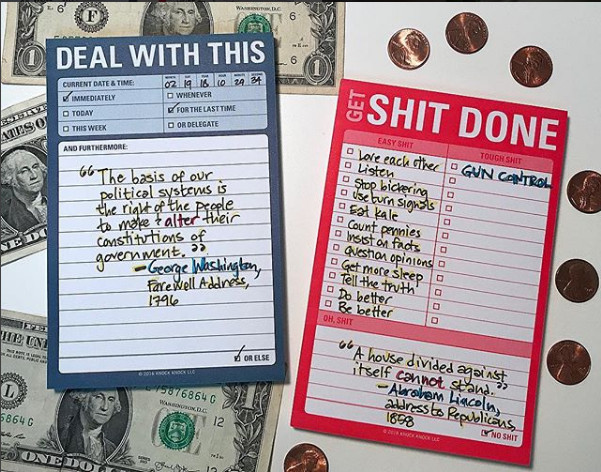 F
WASHINGTON, D.C.
1
DEAL WITH THIS
CURRENT DATE & TIME:
MONTH DAY YEAR HOUR MINUTE SECOND
02 19 18 10 29 34
IMMEDIATELY
WHENEVER
TODAY
FOR THE LAST TIME
THIS WEEK
OR DELEGATE
AND FURTHERMORE:
“The basis of our
political systems is
the right of the people
to make & alter their
constitutions of
government.”
— George Washington,
Farewell Address,
1796
OR ELSE
© 2014 KNOCK KNOCK LLC
GET SHIT DONE
EASY SHIT
Love each other
Listen
Stop bickering
Use turn signals
Eat kale
Count pennies
Insist on facts
Question opinions
Get more sleep
Tell the truth
Do better
Be better
TOUGH SHIT
GUN CONTROL
OH, SHIT
“A house divided against
itself cannot stand.”
— Abraham Lincoln,
address to Republicans,
1858
NO SHIT
© 2014 KNOCK KNOCK LLC
L
WASHINGTON, D.C.
12